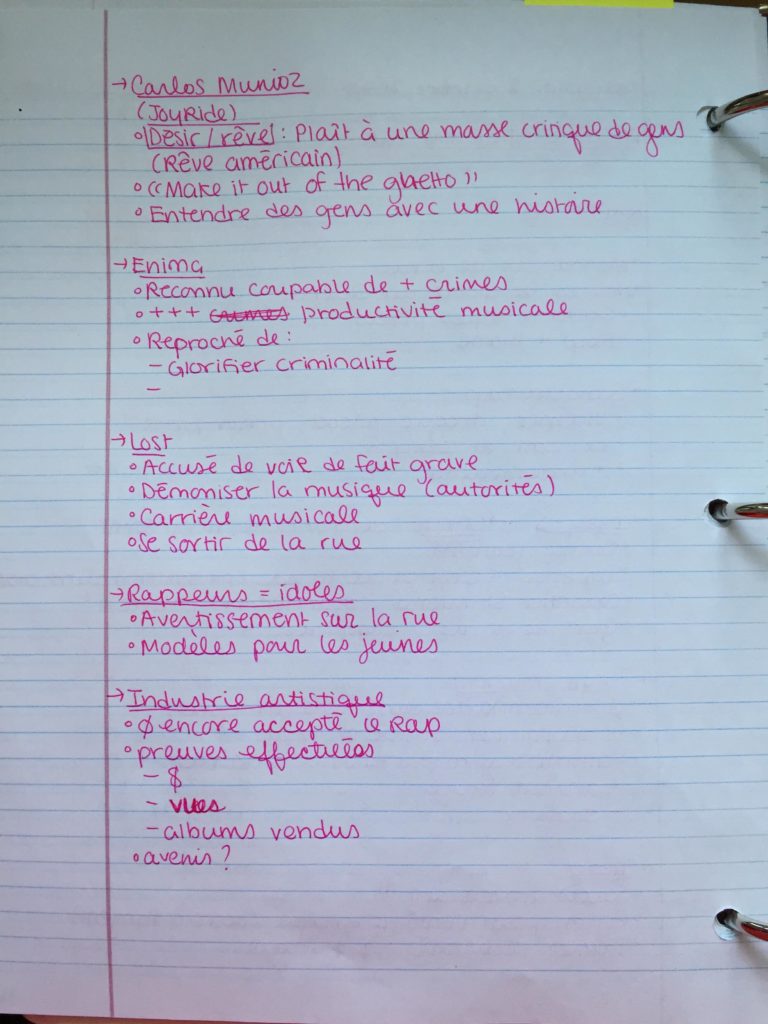 → Carlos Munioz
(JoyRide)
° Désir/rêve : Plaît à une masse crinque de gens
(Rêve américain)
° «Make it out of the ghetto»
° Entendre des gens avec une histoire
→ Enima
° Reconnu coupable de + crimes
° +++ crimes productivité musicale
° Reproché de :
- Glorifier criminalité
-
→ Lost
° Accusé de voie de fait grave
° Démoniser la musique (autorités)
° Carrière musicale
° Se sortir de la rue
→ Rappeurs = idoles
° Avertissement sur la rue
° Modèles pour les jeunes
→ Industrie artistique
° Ø encore accepté le Rap
° preuves effectuées
- $
- vues
- albums vendus
° avenis ?